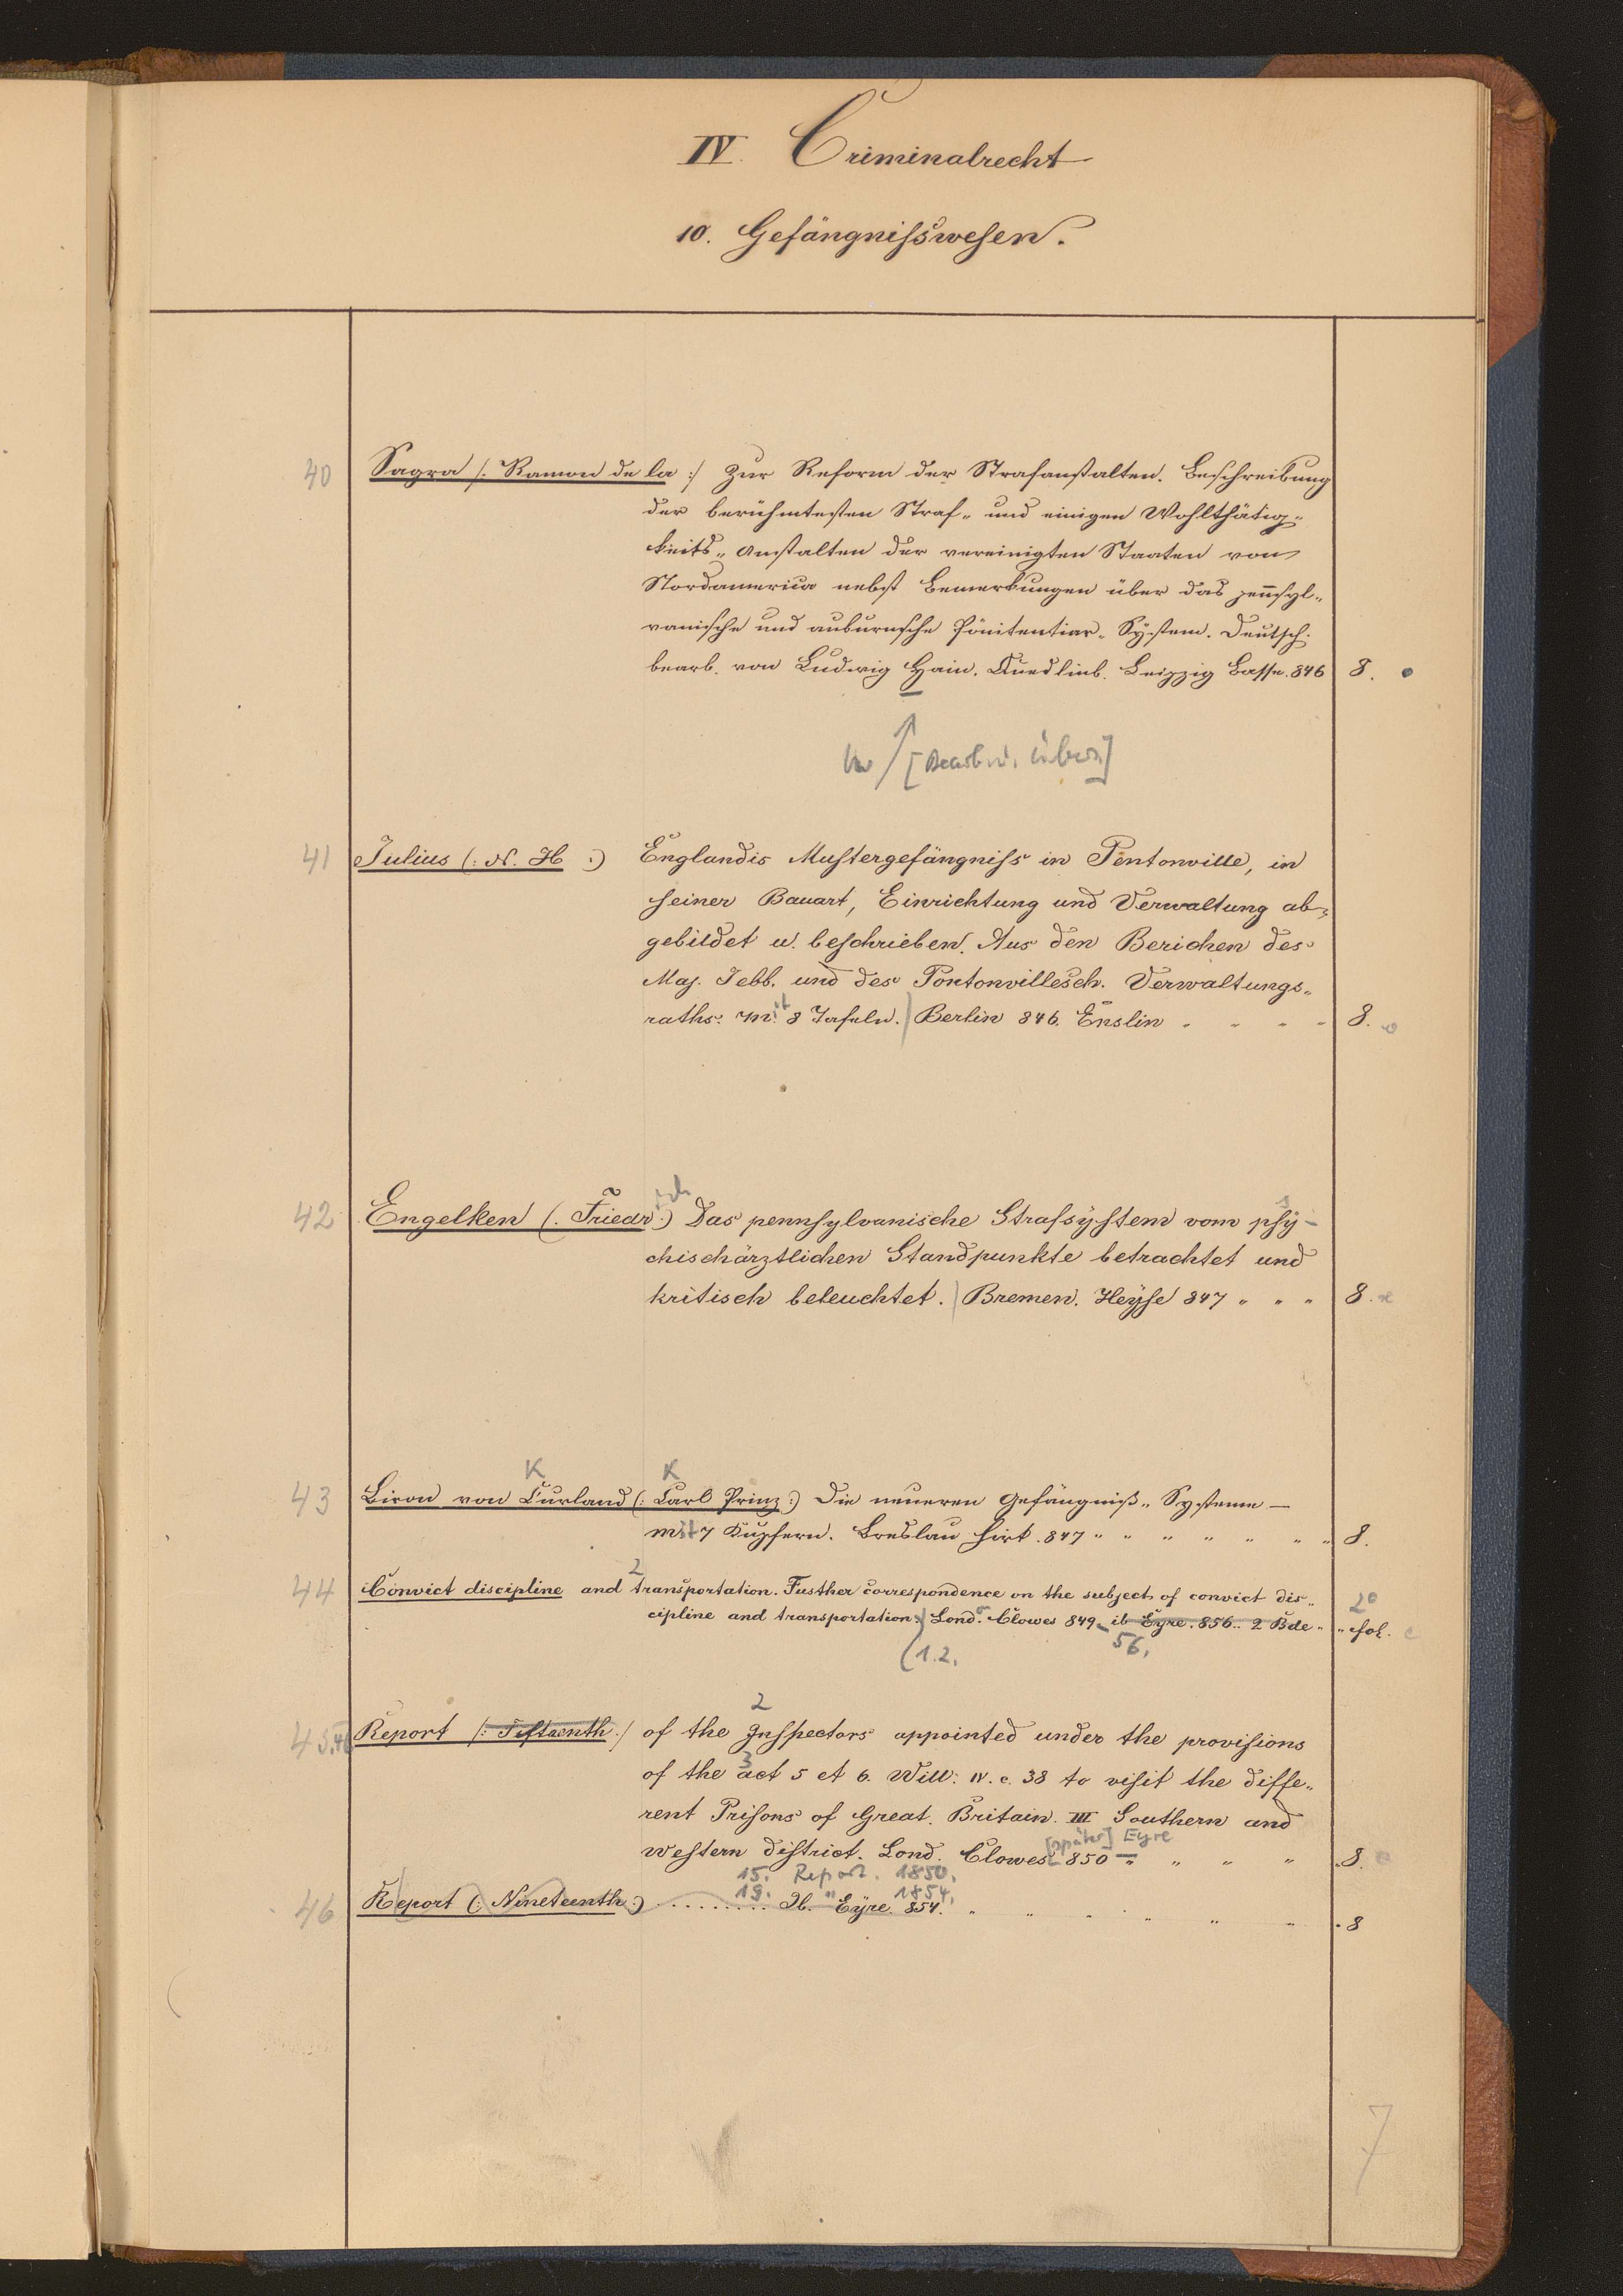 IV. Criminalrecht
10. Gefängnisswesen.
40 Sagra /: Ramon de la :/ Zur Reform der Strafanstalten. Beschreibung
der berühmtesten Straf- und einigen Wohlthätig-
keits-Anstalten der vereinigten Staaten von
Nordamerica nebst Bemerkungen über das pennsyl-
vanische und auburnsche Pönitentiar-System. Deutsch
bearb. von Ludwig Hain. Quedlinb. Leipzig Basse. 846 8.
[Bearb. u. Übers.]
41 Julius (: N. H :) Englandis Mustergefängniss in Pentonville, in
seiner Bauart, Einrichtung und Verwaltung ab-
gebildet u. beschrieben. Aus den Berichen des
Maj. Jebb. und des Pontonvillesch. Verwaltungs-
raths. Mit 8 Tafeln. Berlin 846. Enslin " " " " 8.
42 Engelken (: Friedrich :) Das pennsylvanische Strafsystem vom psy-
chischärztlichen Standpunkte betrachtet und
kritisch beleuchtet. Bremen. Heyse 847 " " " 8.
K K
43 Biron von Curland (: Carl Prinz :) Die neueren Gefängniß-Systeme —
mit 7 Kupfern. Breslau Hirt. 847 " " " " " " " 8.
2
44 Convict discipline and transportation. Fusther correspondence on the subject of convict dis-
2°
cipline and transportation. Lond. Clowes 849 - ib Eyre. 856.. 2 Bde " " fol.
(1.2. 56.
2
45.46 Report /: Fifteenth :/ of the Inspectors appointed under the provisions
3
of the act 5 et 6. Will. IV. c. 38 to visit the diffe-
rent Prisons of Great. Britain. III Southern and
[später] Eyre
western district. Lond. Clowes 850 — " " " " 8.
15. Report. 1850.
19. " 1854.
46 Report (: Nineteenth :) ......... Ib. Eyre. 854. " " " " " " 8
7